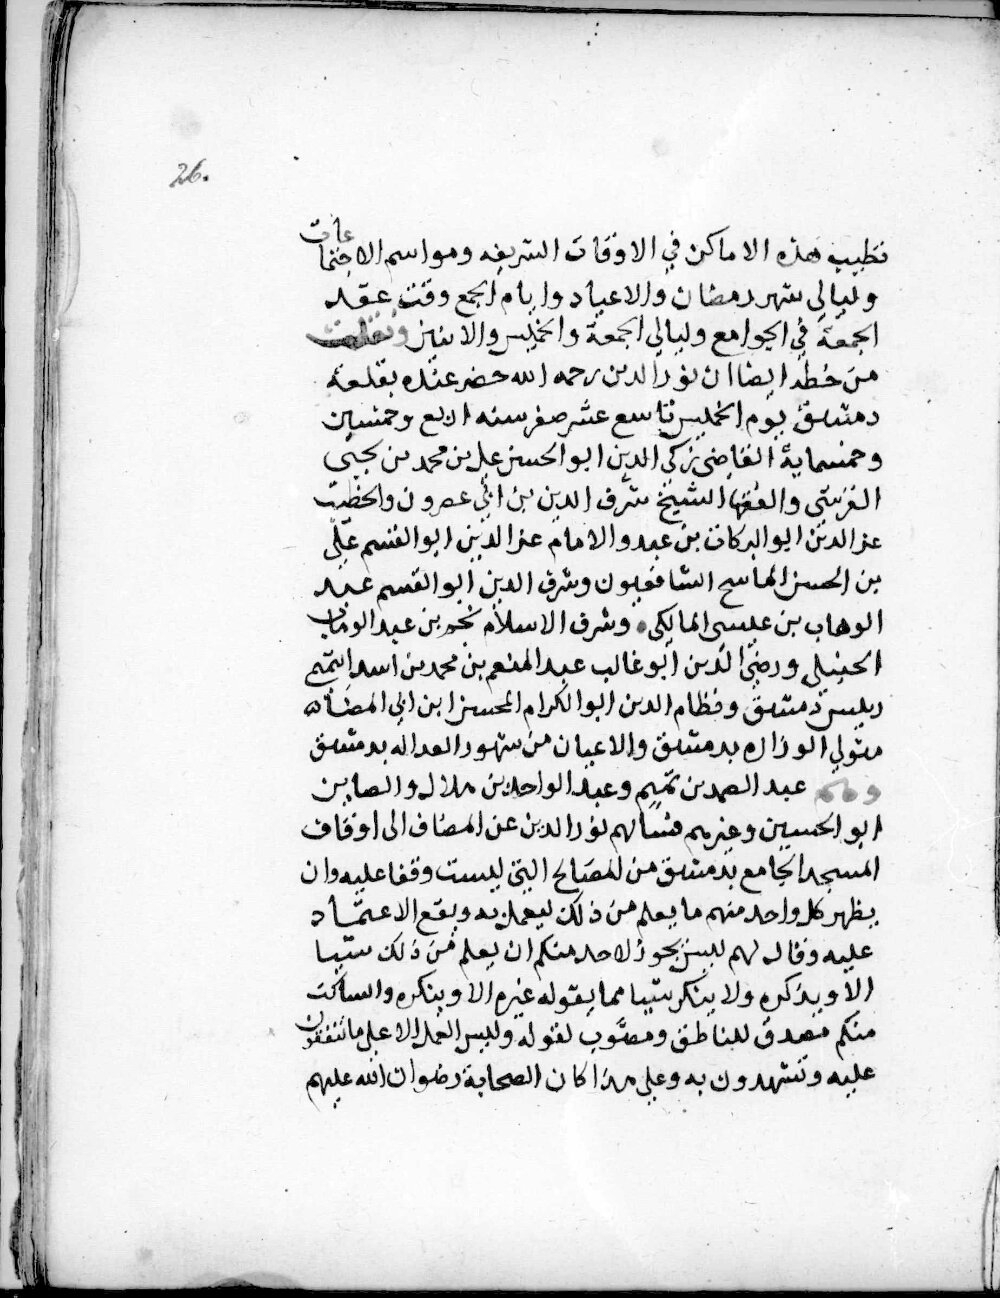 26.
تطيب هذه الاماكن في الاوقات الشريفه ومواسم الاجتماعات
وليالي شهر رمضان والاعياد وايام الجمع وقت عقد
الجمعة في الجوامع وليالي الجمعة والخميس والاثنين ونقلت
من خطه ايضا ان نور الدين رحمه الله حضر عنده بقلعة
دمشق يوم الخميس تاسع عشر صفر سنه اربع وخمسين
وخمسماية القاضي زكي الدين ابو الحسن علي بن محمد بن يحيى
القرشي والفقها الشيخ شرف الدين بن ابي عصرون والخطيب
عز الدين ابو البركات بن عبد والامام عز الدين ابو القسم علي
بن الحسن الماسح الشافعيون وشرف الدين ابو القسم عبد
الوهاب بن عيسى المالكي وشرف الاسلام نجم بن عبد الوهاب
الحنبلي ورضي الدين ابو غالب عبد المنعم بن محمد بن اسد التميمي
رييس دمشق ونظام الدين ابو الكرام المحسن ابن ابي المضاء
متولي الوزاره بدمشق والاعيان من شهود العداله بدمشق
وهم عبد الصمد بن تميم وعبد الواحد بن هلال والصاين
ابو الحسين وغيرهم فسالهم نور الدين عن المضاف الى اوقاف
المسجد الجامع بدمشق من المصالح التي ليست وقفا عليه وان
يظهر كل واحد منهم ما يعلم من ذلك ليعمل به ويقع الاعتماد
عليه وقال لهم ليس يجوز لاحد منكم ان يعلم من ذلك شيا
الا ويذكره ولا ينكر شيا مما يقوله غيره الا وينكره والساكت
منكم مصدق للناطق ومصوب لقوله وليس العمل الا على ما تتفقون
عليه وتشهدون به وعلى هذا كان الصحابة رضوان الله عليهم